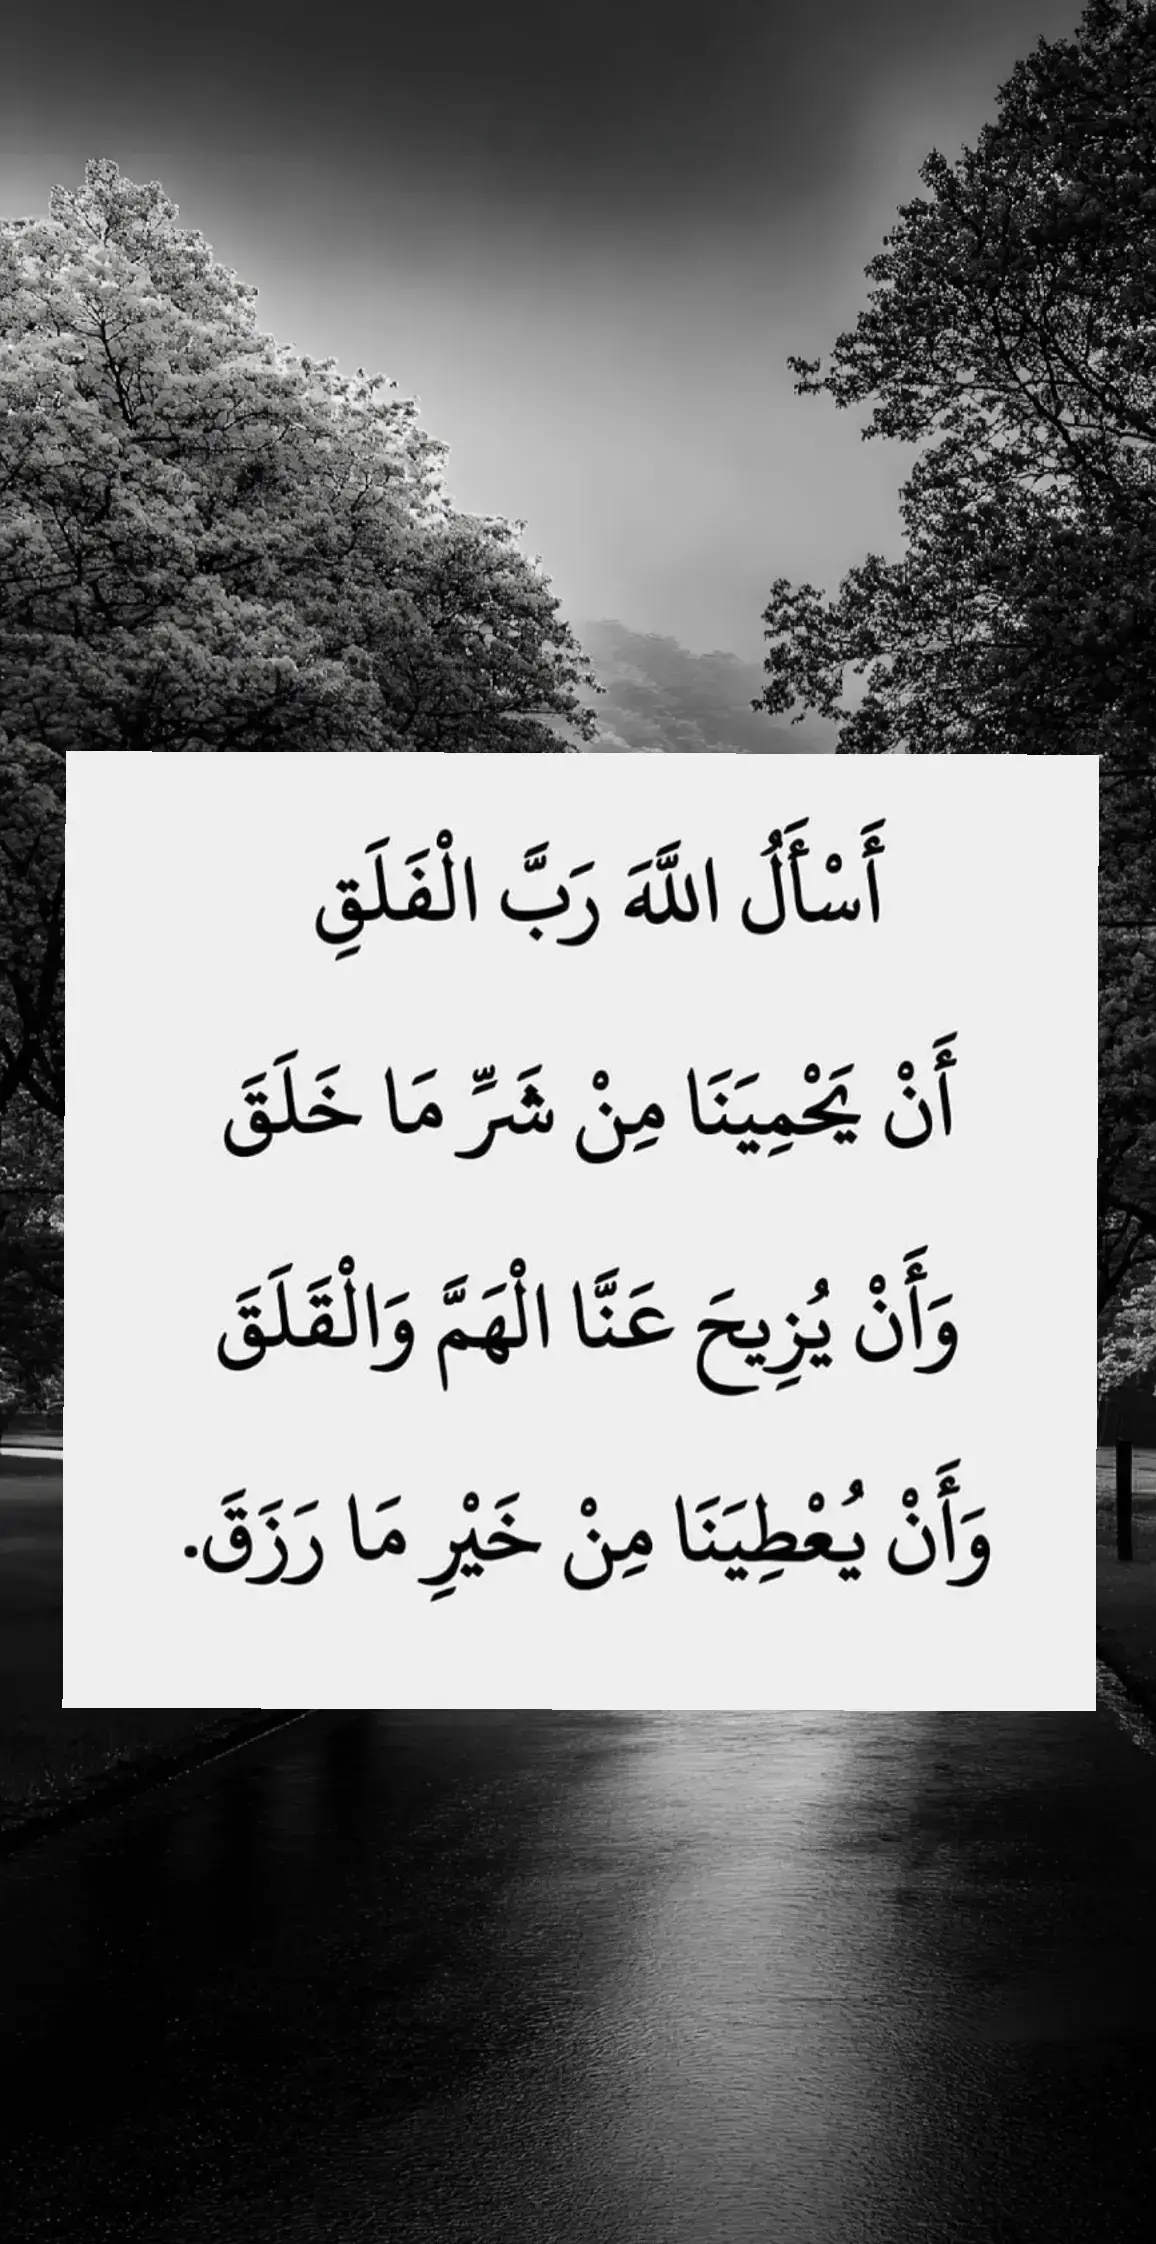 أَسْأَلُ اللَّهَ رَبَّ الْفَلَقِ
أَنْ يَحْمِيَنَا مِنْ شَرِّ مَا خَلَقَ
وَأَنْ يُزِيحَ عَنَّا الْهَمَّ وَالْقَلَقَ
وَأَنْ يُعْطِيَنَا مِنْ خَيْرِ مَا رَزَقَ.